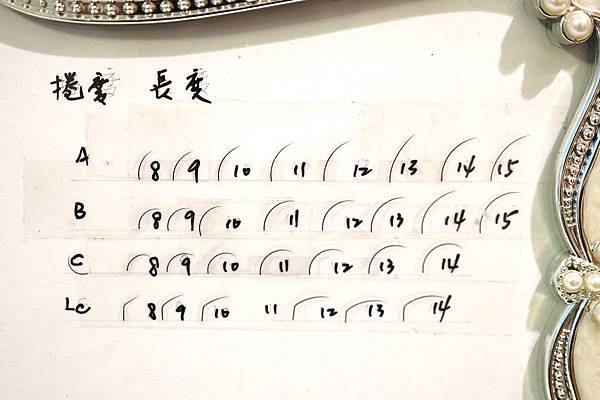 捲度 長度
A 8 9 10 11 12 13 14 15
B 8 9 10 11 12 13 14 15
C 8 9 10 11 12 13 14
LC 8 9 10 11 12 13 14